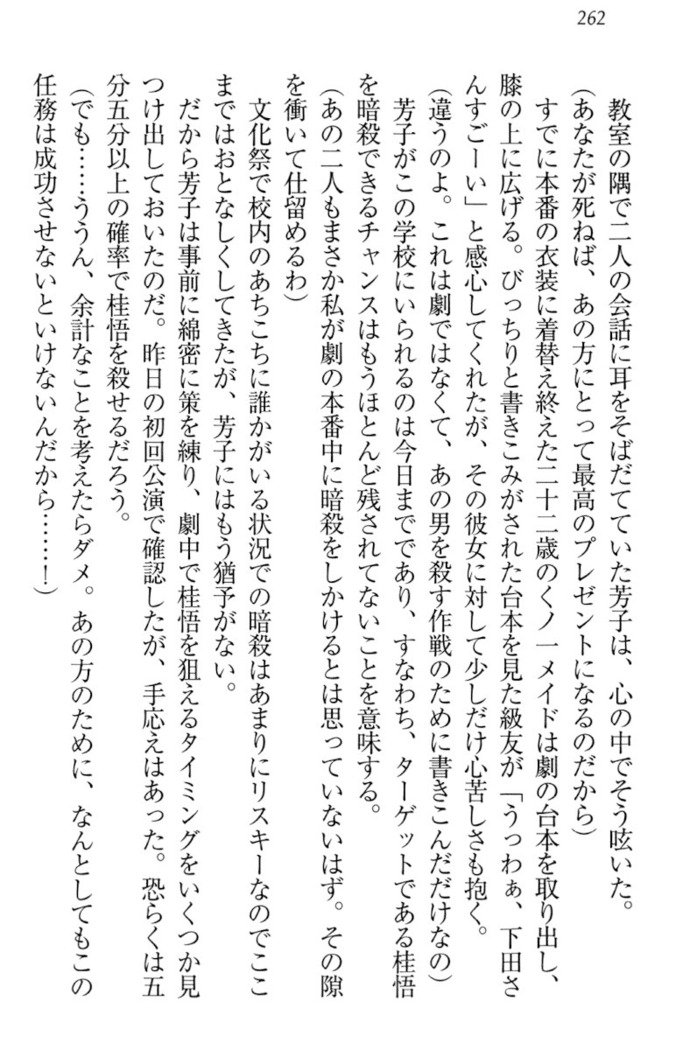 262
教室の隅で二人の会話に耳をそばだてていた芳子は、心の中でそう呟いた。
(あなたが死ねば、あの方にとって最高のプレゼントになるのだから)
すでに本番の衣装に着替え終えた二十二歳のくノ一メイドは劇の台本を取り出し、
膝の上に広げる。びっちりと書きこみがされた台本を見た級友が「うっわぁ、下田さ
んすごーい」と感心してくれたが、その彼女に対して少しだけ心苦しさも抱く。
(違うのよ。これは劇ではなくて、あの男を殺す作戦のために書きこんだだけなの)
芳子がこの学校にいられるのは今日までであり、すなわち、ターゲットである桂悟
を暗殺できるチャンスはもうほとんど残されてないことを意味する。
(あの二人もまさか私が劇の本番中に暗殺をしかけるとは思っていないはず。その隙
を衝いて仕留めるわ)
文化祭で校内のあちこちに誰かがいる状況での暗殺はあまりにリスキーなのでここ
まではおとなしくしてきたが、芳子にはもう猶予がない。
だから芳子は事前に綿密に策を練り、劇中で桂悟を狙えるタイミングをいくつか見
つけ出しておいたのだ。昨日の初回公演で確認したが、手応えはあった。恐らくは五
分五分以上の確率で桂悟を殺せるだろう。
(でも……ううん、余計なことを考えたらダメ。あの方のために、なんとしてもこの
任務は成功させないといけないんだから……!)